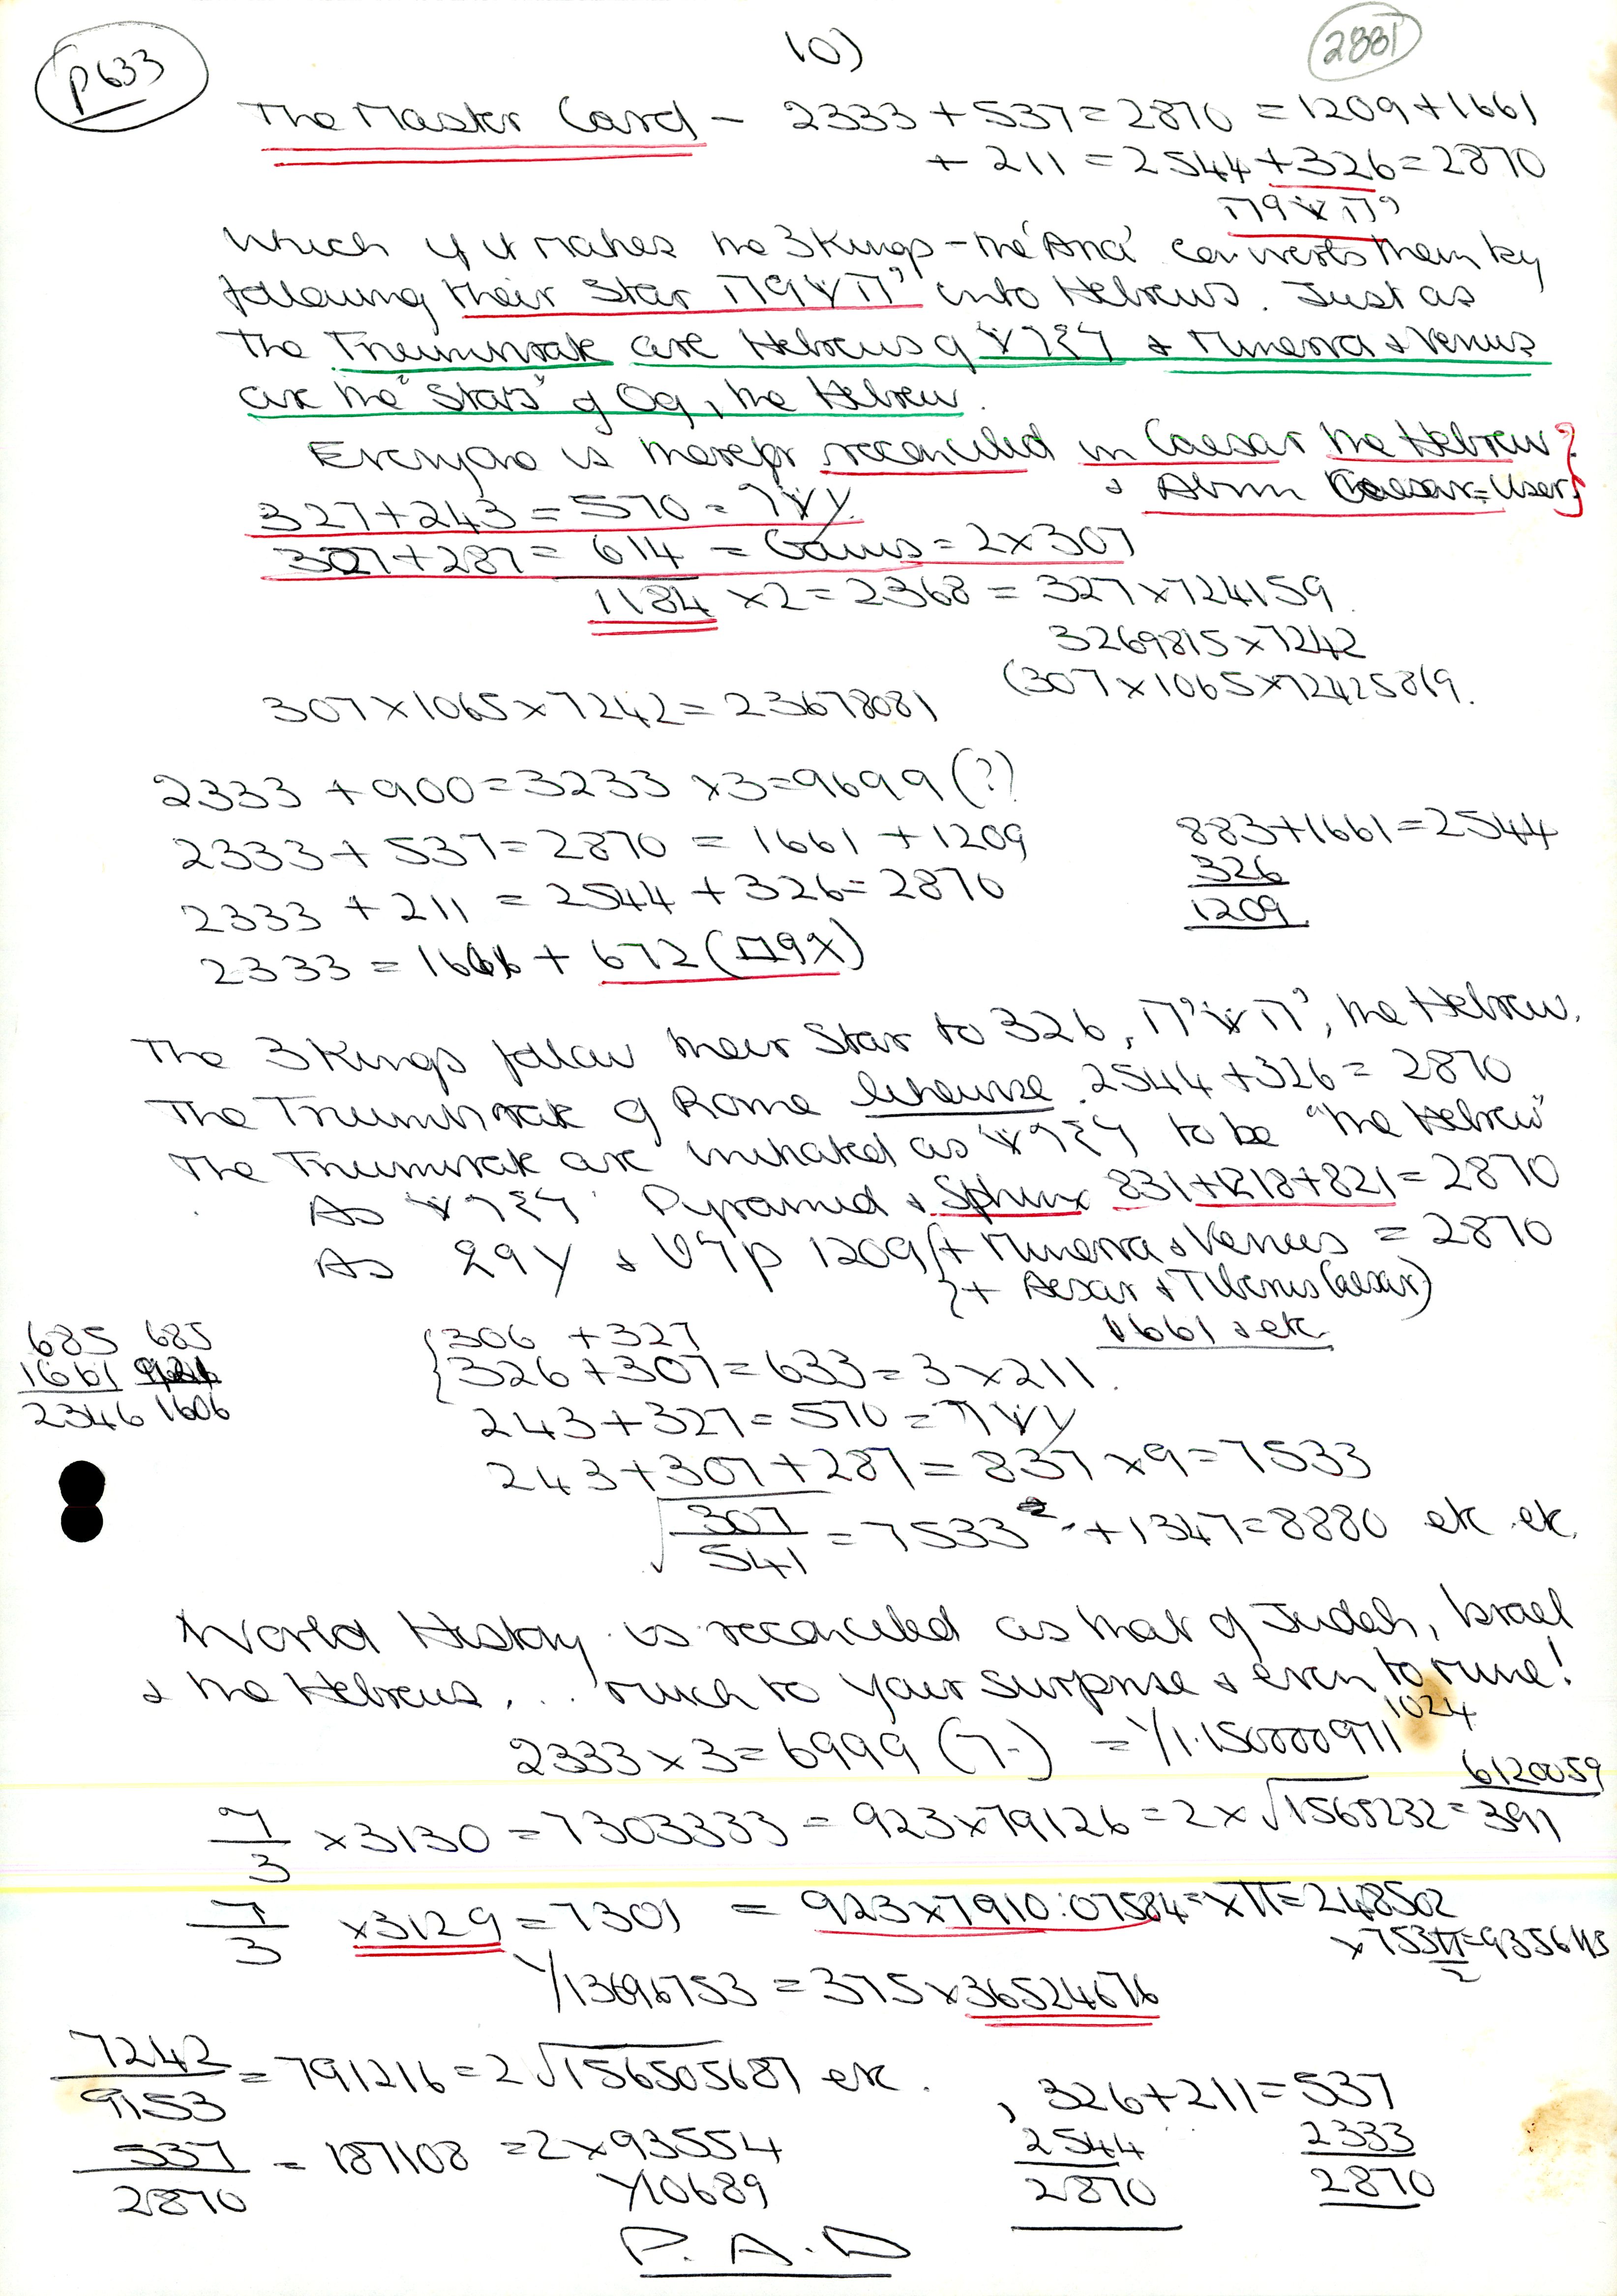 p633
10)
2881
The Master Card - 2333 + 537 = 2870 = 1209 + 1661
+ 211 = 2544 + 326 = 2870
Which if it makes the 3 Kings - the 'And' converts them by
following their Star into Hebrews. Just as
The Triumvirate are Hebrews of & Minerva & Venus
are the "Stars" of Og, the Hebrew.
Everyone is therefor reconciled in Caesar the Hebrew?
327 + 243 = 570 =
307 + 287 = 614 = Gaius = 2 x 307
1184 x 2 = 2368 = 327 x 724159
3269815 x 7242
(307 x 1065 x 72425869.
307 x 1065 x 7242 = 23678081
2333 + 900 = 3233 x 3 = 9699 (?)
2333 + 537 = 2870 = 1661 + 1209
883 + 1661 = 2544
2333 + 211 = 2544 + 326 = 2870
326
1209
2333 = 1661 + 672
The 3 Kings follow their Star to 326, the Hebrew.
The Triumvirate of Rome likewise. 2544 + 326 = 2870
The Triumvirate are initiated as to be "the Hebrew"
As Pyramid & Sphinx 831 + 1218 + 821 = 2870
As & 1209 + Minerva & Venus = 2870
+ Aesar & Tiberius Caesar)
1661 & etc
685 685
1661
2346 1606
306 + 327
326 + 307 = 633 = 3 x 211.
243 + 327 = 570 =
243 + 307 + 287 = 837 x 9 = 7533
√307/541 = 7533 + 1347 = 8880 etc etc.
World History is reconciled as that of Judah, Israel
& the Hebrews... much to your surprise & even to mine!
2333 x 3 = 6999 (7-) = 1/1.150000971 1024
7/3 x 3130 = 7303333 = 923 x 79126 = 2 x √1565232 = 6120059/391
7/3 x 3129 = 7301 = 923 x 7910:07584 = x π = 248502
x 753π/2 = 9356113
1/13696753 = 375 x 36524676
7242/9153 = 791216 = 2√156505687 etc.
, 326 + 211 = 537
2544 2333
2870 2870
537/2870 = 187108 = 2 x 93554
1/10689
P. A. D